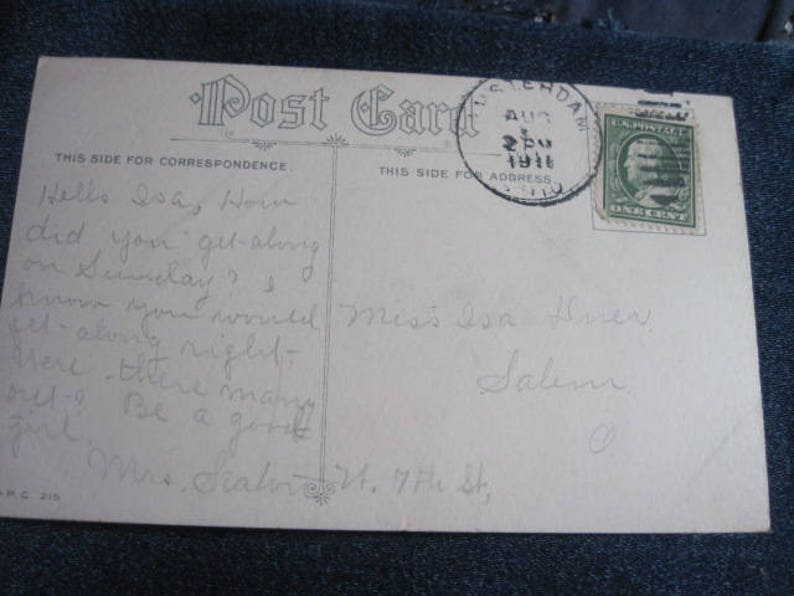 Post Card
THIS SIDE FOR CORRESPONDENCE.
THIS SIDE FOR ADDRESS
AUG
2 PM
1911
U.S. POSTAGE
ONE CENT
Hello Isa, How
did you get along
on Sunday? I
know you would
get along right.
Were there many
out? Be a good
girl.
Mrs.
Miss Isa
Salem
O
W. 7th St,
P.C. 215